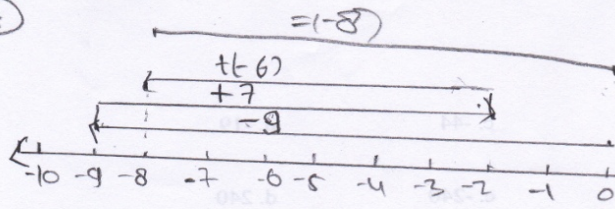 =(-8)
+(-6)
+7
-9
-10 -9 -8 -7 -6 -5 -4 -3 -2 -1 0